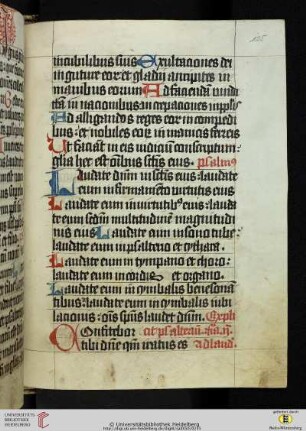 in cubilibus suis Exultaciones dei
in guture eorum et gladii ancipites in
manibus eorum Ad faciendam vindic
tam in nacionibus increpaciones in pplis
Ad alligandos reges eorum in compedi
bus: et nobiles eorum in manicis ferreis
Ut faciant in eis iudicium conscriptum
glia hec est omnibus sctis eius. psalmus
Laudate dnm in sctis eius: laudate
eum in firmamento virtutis eius
Laudate eum in virtutibus eius: lauda
te eum scdm multitudinem magnitudi
nis eius Laudate eum in sono tube:
laudate eum in psalterio et cythara.
Laudate eum in tympano et choro:
laudate eum in cordis et organo.
Laudate eum in cymbalis benesona
tibus: laudate eum in cymbalis iubi
lacionis: omnis spus laudet dnm. Exph
Confitebor
tibi dne qm iratus es Ad laud.
UNIVERSITÄTS
BIBLIOTHEK
HEIDELBERG
Universitätsbibliothek Heidelberg
Baden-Württemberg